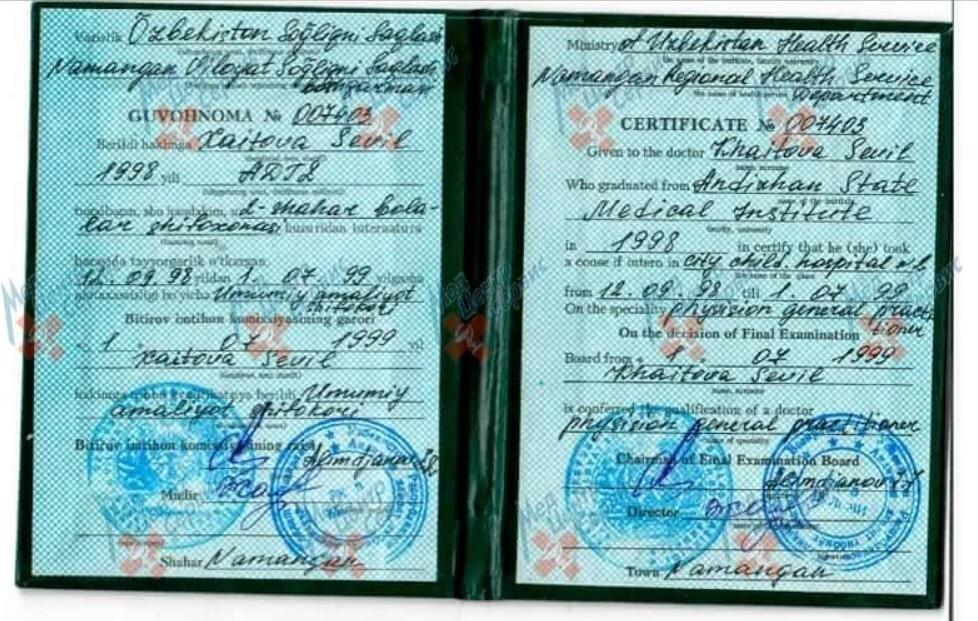 Vazirlik Özbekiston Soğliqni Saqlash
Namangan Viloyat Soğliqni Saqlash
boshqarmasi
GUVOHNOMA № 007403
Berildi hakimga Xaitova Sevil
1998 yili ADTI
tugallagan, shu haqdakim, u 2-shahar bola-
lar shifoxonasi huzuridan internatura
haqasida tayyorgarlik o'tkazgan.
12.09.98 yildan 1.07.99 yilgasha
mutaxassisligi bo'yicha Umumiy amaliyot
shifokori
Bitiruv imtihon komissiyasining qarori
1. 07 1999 yil
Xaitova Sevil
hakimga ushbu kvalifikatsiya berildi Umumiy
amaliyot shifokori
Bitiruv imtihon komissiyasining raisi
Alimdjanov
Mudir
Shahar Namangan
Ministry of Uzbekistan Health Service
the name of the institute, faculty university
Namangan Regional Health Service
the name of health service Department
CERTIFICATE № 007403
Given to the doctor Khaitova Sevil
name, surname
Who graduated from Andizhan State
name of the institute
Medical Institute
faculty, university
in 1998 in certify that he (she) took
a couse if intern in city child. hospital n.2
from 12.09.98 till 1.07.99
On the speciality physision general practi
tioner
On the decision of Final Examination
Board from 1. 07 1999
Khaitova Sevil
name, surname
is conferred the qualification of a doctor
physision general practitioner
name of speciality
Chairman of Final Examination Board
Alimdjanov
Director
Town Namangan